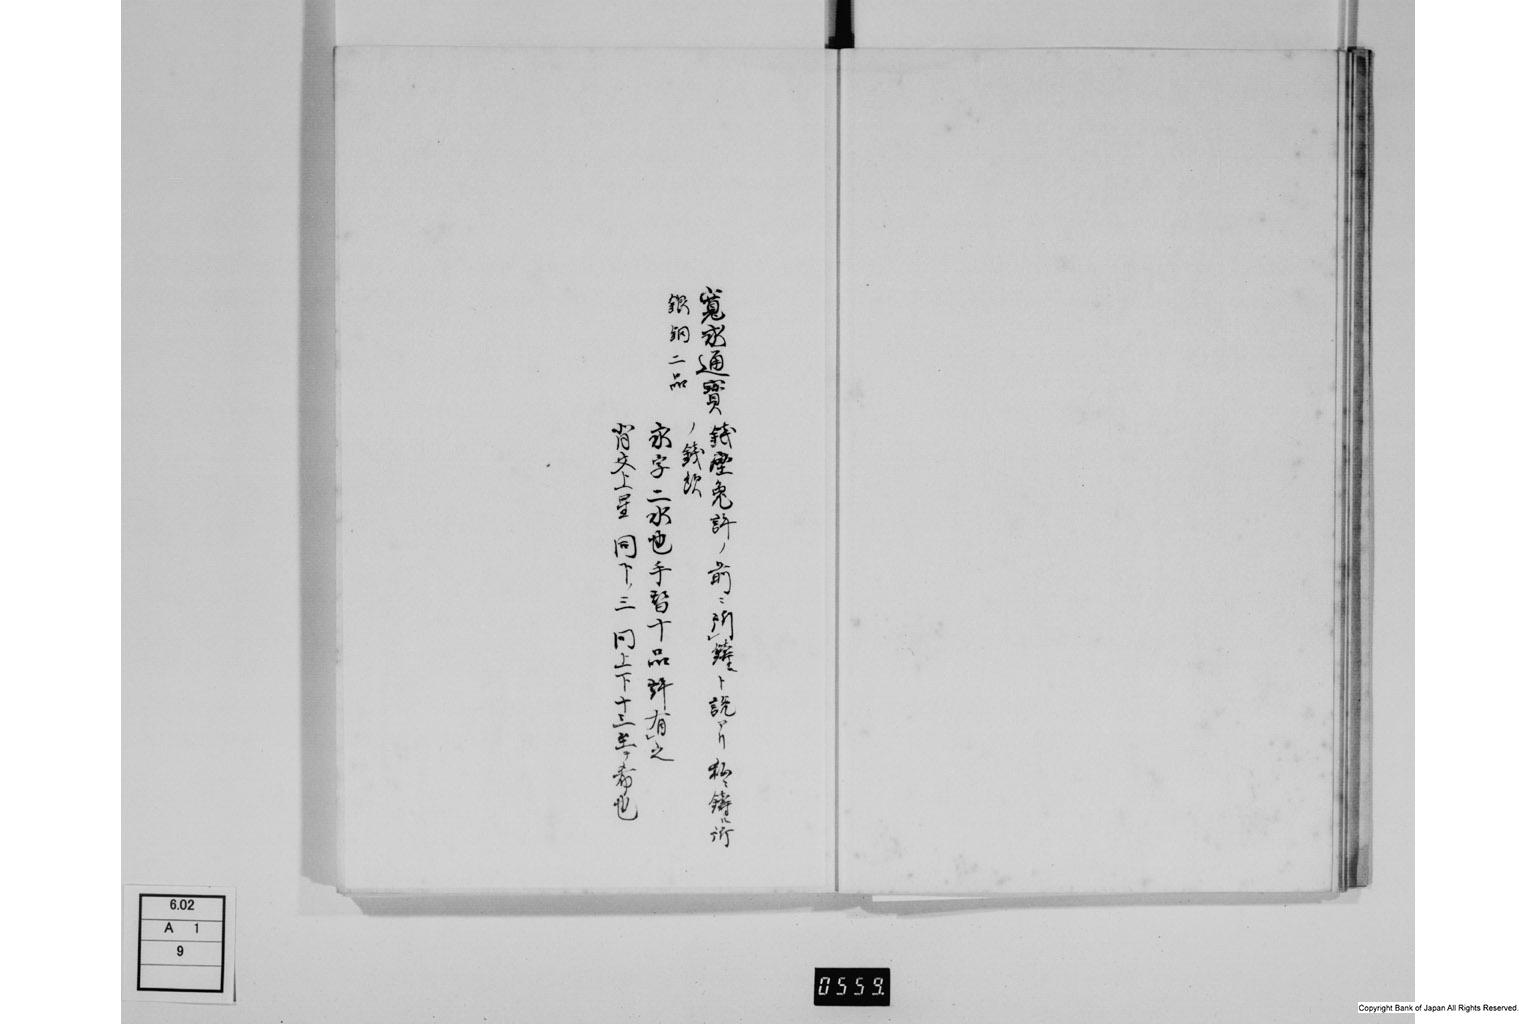 寛永通寳 銭座免許ノ前ニ所鑄ト説アリ 私ニ鑄ル所
銀銅二品 ノ銭歟
永字二水也手習十品許有之
背文上星 同下ノ三 同上下十三至テ希也
6.02
A 1
9
0559.
Copyright Bank of Japan All Rights Reserved.